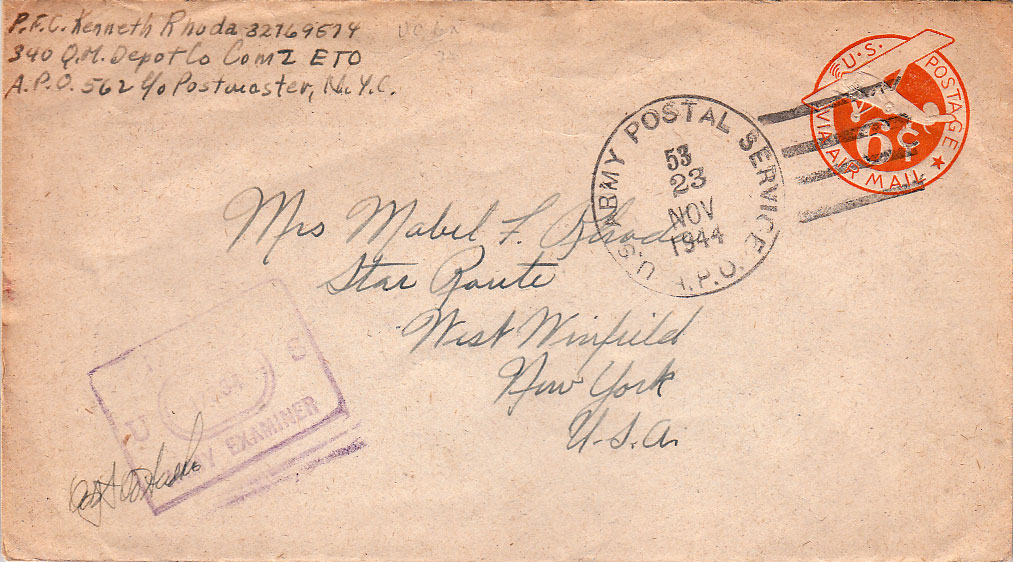 P.F.C. Kenneth Rhoda 32769574
340 Q.M. Depot Co Com Z ETO
A.P.O. 562 c/o Postmaster, N.Y.C.
U.S. POSTAGE
VIA AIR MAIL
6¢
U.S. ARMY POSTAL SERVICE
A.P.O.
53
23
NOV
1944
Mrs Mabel F. Rhoda
Star Route
West Winfield
New York
U.S.A.
U S
ARMY EXAMINER